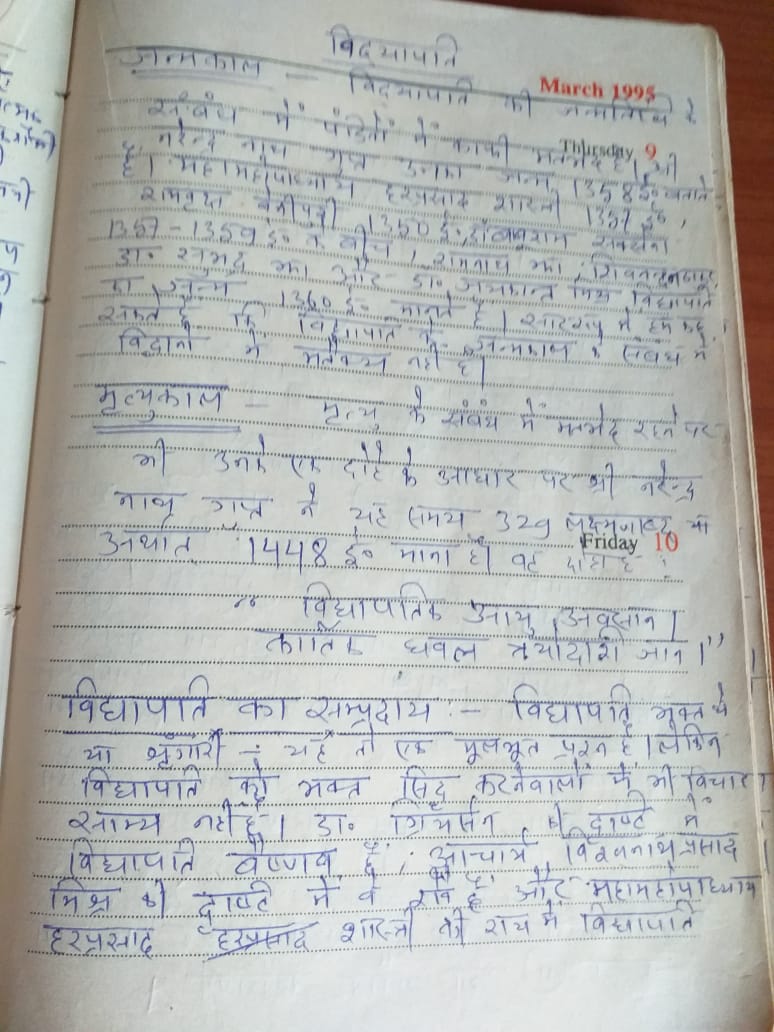 विद्यापति
March 1995
जन्मकाल — विद्यापति की जन्मतिथि के
संबंध में पंडितों में काफी मतभेद है। श्री
Thursday 9
नरेन्द्र नाथ गुप्त उनका जन्म 1358 ई० बताते
है। महामहोपाध्याय हरप्रसाद शास्त्री 1357 ई०,
रामवृक्ष बेनीपुरी 1350 ई०, डॉ० बाबूराम सक्सेना
1357-1359 ई० के बीच, रामनाथ झा, शिवनन्दन ठाकुर,
डा० सुभद्र झा और डा० जयकान्त मिश्र विद्यापति
का जन्म 1360 ई० मानते है। सारांश में हम कह
सकते है कि विद्यापति के जन्मकाल के संबंध में
विद्वानों में मतैक्य नहीं है।
मृत्युकाल — मृत्यु के संबंध में मतभेद रहने पर
भी उनके एक दोहे के आधार पर श्री नरेन्द्र
नाथ गुप्त ने यह समय 329 लक्ष्मणाब्द या
अर्थात् 1448 ई० माना है। वह दोहा है :
Friday 10
"विद्यापतिक आयु अवसान।
कार्तिक धवल त्रयोदशी जान।"
विद्यापति का सम्प्रदाय :- विद्यापति भक्त थे
या श्रृंगारी - यह तो एक मूलभूत प्रश्न है। लेकिन
विद्यापति को भक्त सिद्ध करनेवालों में भी विचार
साम्य नहीं है। डा० ग्रियर्सन की दृष्टि में
विद्यापति वैष्णव है, आचार्य विश्वनाथ प्रसाद
मिश्र की दृष्टि में वे शैव है और महामहोपाध्याय
हरप्रसाद हरप्रसाद शास्त्री की राय में विद्यापति